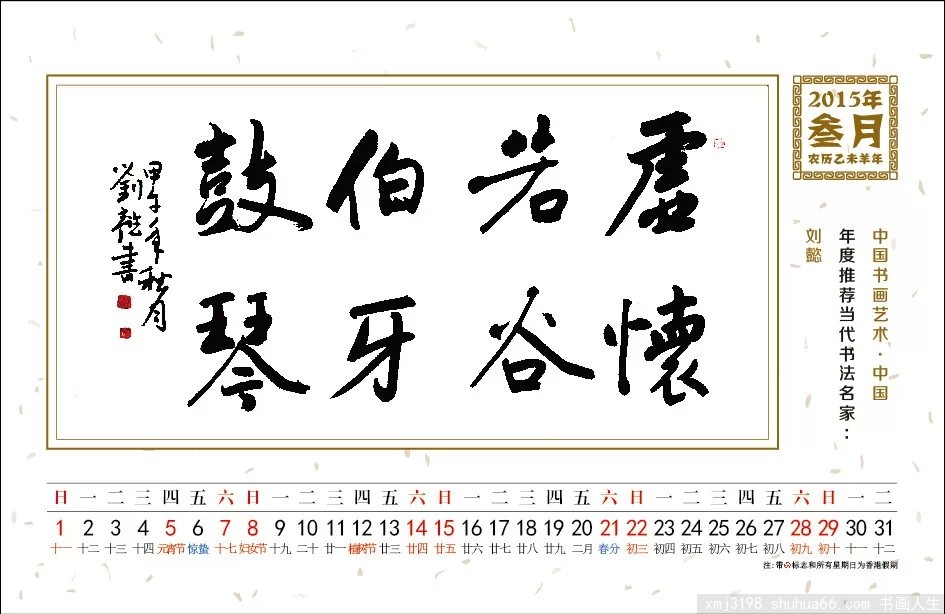 虚懷
若谷
伯牙
鼓琴
甲午年秋月
劉懿書
2015年
叁月
农历乙未羊年
中国书画艺术·中国
年度推荐当代书法名家：
刘懿
日 一 二 三 四 五 六 日 一 二 三 四 五 六 日 一 二 三 四 五 六 日 一 二 三 四 五 六 日 一 二
1 2 3 4 5 6 7 8 9 10 11 12 13 14 15 16 17 18 19 20 21 22 23 24 25 26 27 28 29 30 31
十一 十二 十三 十四 元宵节 惊蛰 十七 妇女节 十九 二十 廿一 植树节 廿三 廿四 廿五 廿六 廿七 廿八 廿九 二月 春分 初三 初四 初五 初六 初七 初八 初九 初十 十一 十二
注：带标志和所有星期日为香港假期
xmj3198.shuhua66.com 书画人生